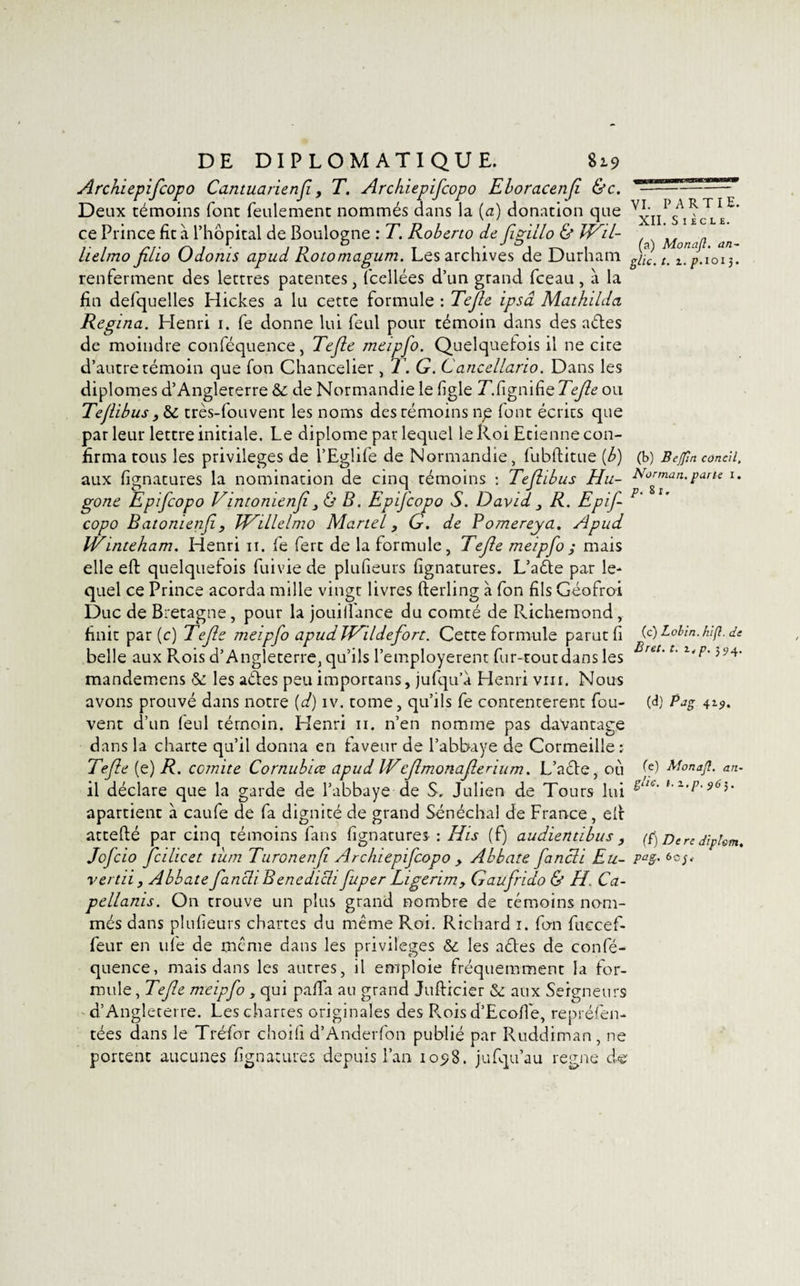 DE DIPLOMATIQUE. 829
Archiepiſcopo Cantuarienſi, T. Archiepiſcopo Eboracenſi &c.
Deux témoins ſont ſeulement nommés dans la (a) donation que
ce Prince fit à l'hôpital de Boulogne : T. Roberto de ſigillo & Wil-
lielmo filio Odonis apud Rotomagum. Les archives de Durham
renferment des lettres patentes, ſcellées d'un grand ſceau, à la
fin deſquelles Hickes a lu cette formule : Teſte ipsâ Mathilda
Regina. Henri I. ſe donne lui ſeul pour témoin dans des actes
de moindre conſéquence, Teſte meipſo. Quelquefois il ne cite
d'autre témoin que ſon Chancelier, T. G. Cancellario. Dans les
diplomes d'Angleterre & de Normandie le ſigle T. ſignifie Teſte ou
Teſtibus, & très-ſouvent les noms des témoins ne ſont écrits que
par leur lettre initiale. Le diplome par lequel le Roi Etienne con-
firma tous les privileges de l'Egliſe de Normandie, ſubſtitue (b)
aux ſignatures la nomination de cinq témoins : Teſtibus Hu-
gone Epiſcopo Vintonienſi, & B. Epiſcopo S. David, R. Epiſ-
copo Batonienſi, Willelmo Martel, G. de Pomereya. Apud
Winteham. Henri II. ſe ſert de la formule, Teſte meipſo ; mais
elle eſt quelquefois ſuivie de pluſieurs ſignatures. L'acte par le-
quel ce Prince acorda mille vingt livres ſterling à ſon fils Géofroi
Duc de Bretagne, pour la jouiſſance du comté de Richemond,
finit par (c) Teſte meipſo apud Wildefort. Cette formule parut ſi
belle aux Rois d'Angleterre, qu'ils l'employerent ſur-tout dans les
mandemens & les actes peu importans, juſqu'à Henri VIII. Nous
avons prouvé dans notre (d) IV. tome, qu'ils ſe contenterent ſou-
vent d'un ſeul témoin. Henri II. n'en nomme pas davantage
dans la charte qu'il donna en faveur de l'abbaye de Cormeille :
Teſte (e) R. comite Cornubiæ apud Weſtmonaſterium. L'acte, où
il déclare que la garde de l'abbaye de S. Julien de Tours lui
apartient à cauſe de ſa dignité de grand Sénéchal de France, eſt
atteſté par cinq témoins ſans ſignatures : His (f) audientibus,
Joſcio ſcilicet tùm Turonenſi Archiepiſcopo, Abbate ſancti Eu-
vertii, Abbate ſancti Benedicti ſuper Ligerim, Gaufrido & H. Ca-
pellanis. On trouve un plus grand nombre de témoins nom-
més dans pluſieurs chartes du même Roi. Richard I. ſon ſucceſ-
ſeur en uſe de même dans les privileges & les actes de conſé-
quence, mais dans les autres, il emploie fréquemment la for-
mule, Teſte meipſo, qui paſſa au grand Juſticier & aux Seigneurs
d'Angleterre. Les chartes originales des Rois d'Ecoſſe, repréſen-
tées dans le Tréſor choiſi d'Anderſon publié par Ruddiman, ne
portent aucunes ſignatures depuis l'an 1098. juſqu'au regne de
VI. PARTIE.
XII. SIÈCLE.
(a) Monaſt. an-
glic. t. 2. p. 1013.
(b) Beſſin concil.
Norman. parte 1.
p. 81.
(c) Lobin. hiſt. de
Bret. t. 2. p. 394.
(d) Pag 429.
(e) Monaſt. an-
glic. t. 2. p. 963.
(f) De re diplom.
pag. 605.